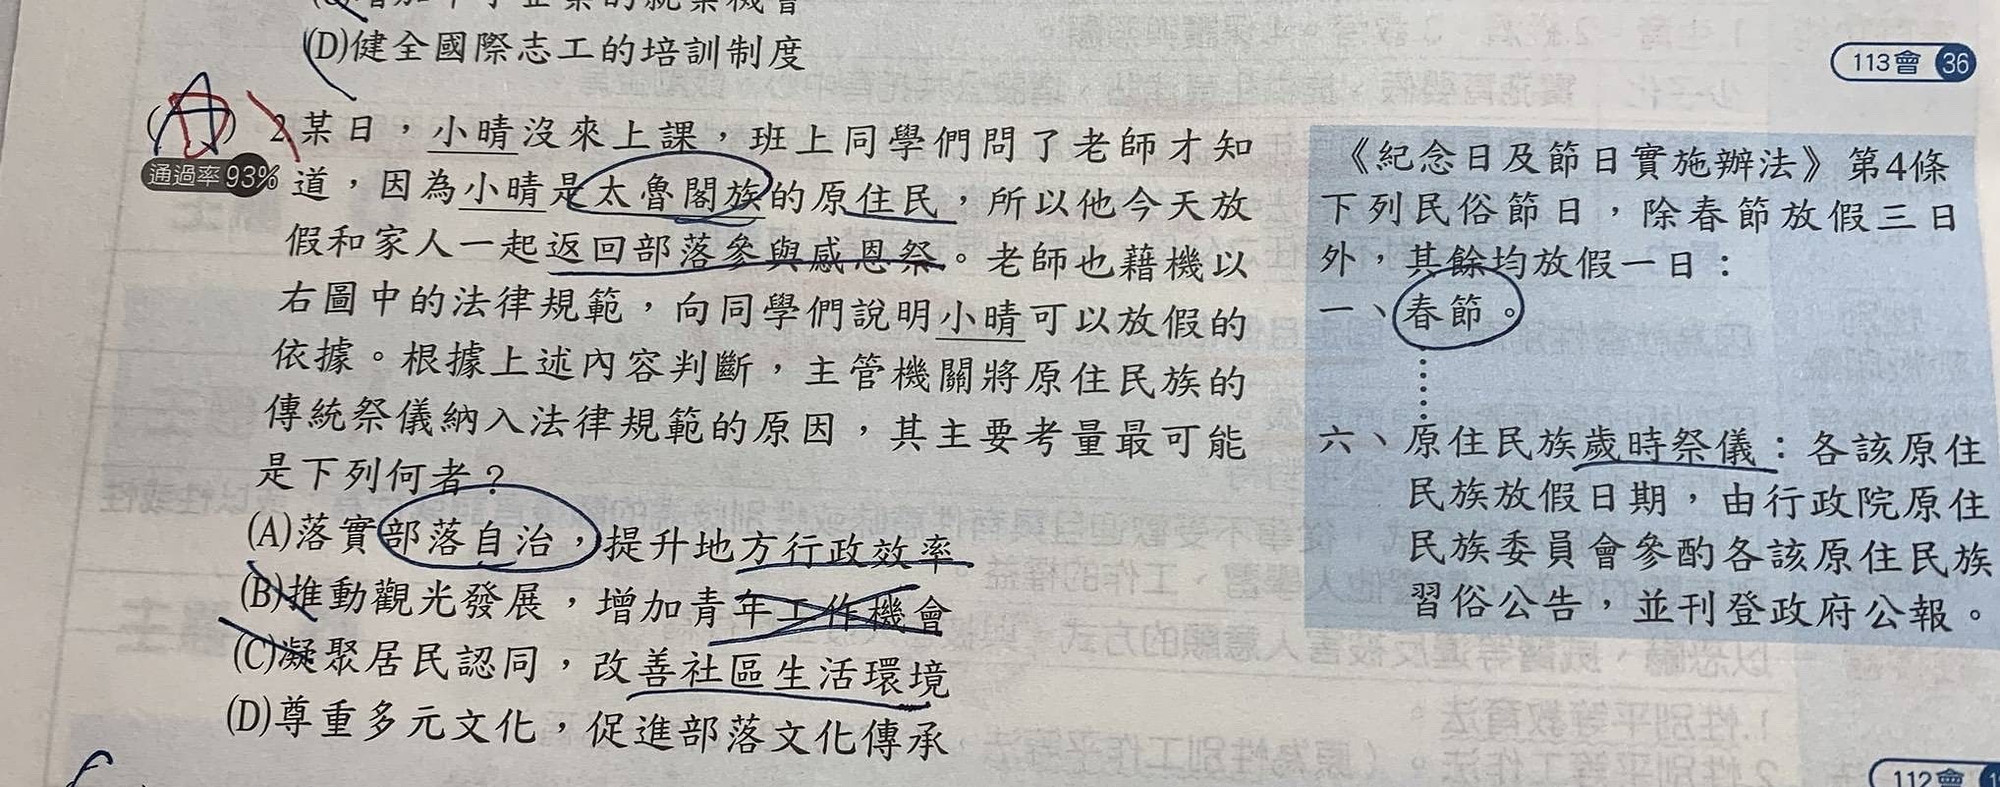 (D)健全國際志工的培訓制度
113會 36
(A) 2.某日，小晴沒來上課，班上同學們問了老師才知
通過率 93%
道，因為小晴是太魯閣族的原住民，所以他今天放
假和家人一起返回部落參與感恩祭。老師也藉機以
右圖中的法律規範，向同學們說明小晴可以放假的
依據。根據上述內容判斷，主管機關將原住民族的
傳統祭儀納入法律規範的原因，其主要考量最可能
是下列何者？
(A)落實部落自治，提升地方行政效率
(B)推動觀光發展，增加青年工作機會
(C)凝聚居民認同，改善社區生活環境
(D)尊重多元文化，促進部落文化傳承
《紀念日及節日實施辦法》第4條
下列民俗節日，除春節放假三日
外，其餘均放假一日：
一、春節。
⋮
六、原住民族歲時祭儀：各該原住
民族放假日期，由行政院原住
民族委員會參酌各該原住民族
習俗公告，並刊登政府公報。
112會